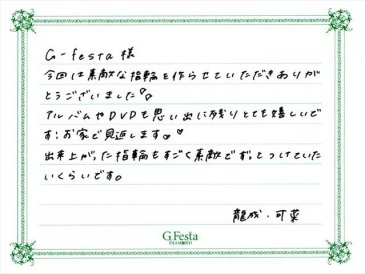 G-festa 様
今回は素敵な指輪を作らせていただきありが
とうございました♡
アルバムやDVDも思い出に残りとても嬉しいで
す！お家で見返します。♥
出来上がった指輪もすごく素敵でずっとつけていた
いくらいです。
龍成・可菜
G.Festa
DIAMOND